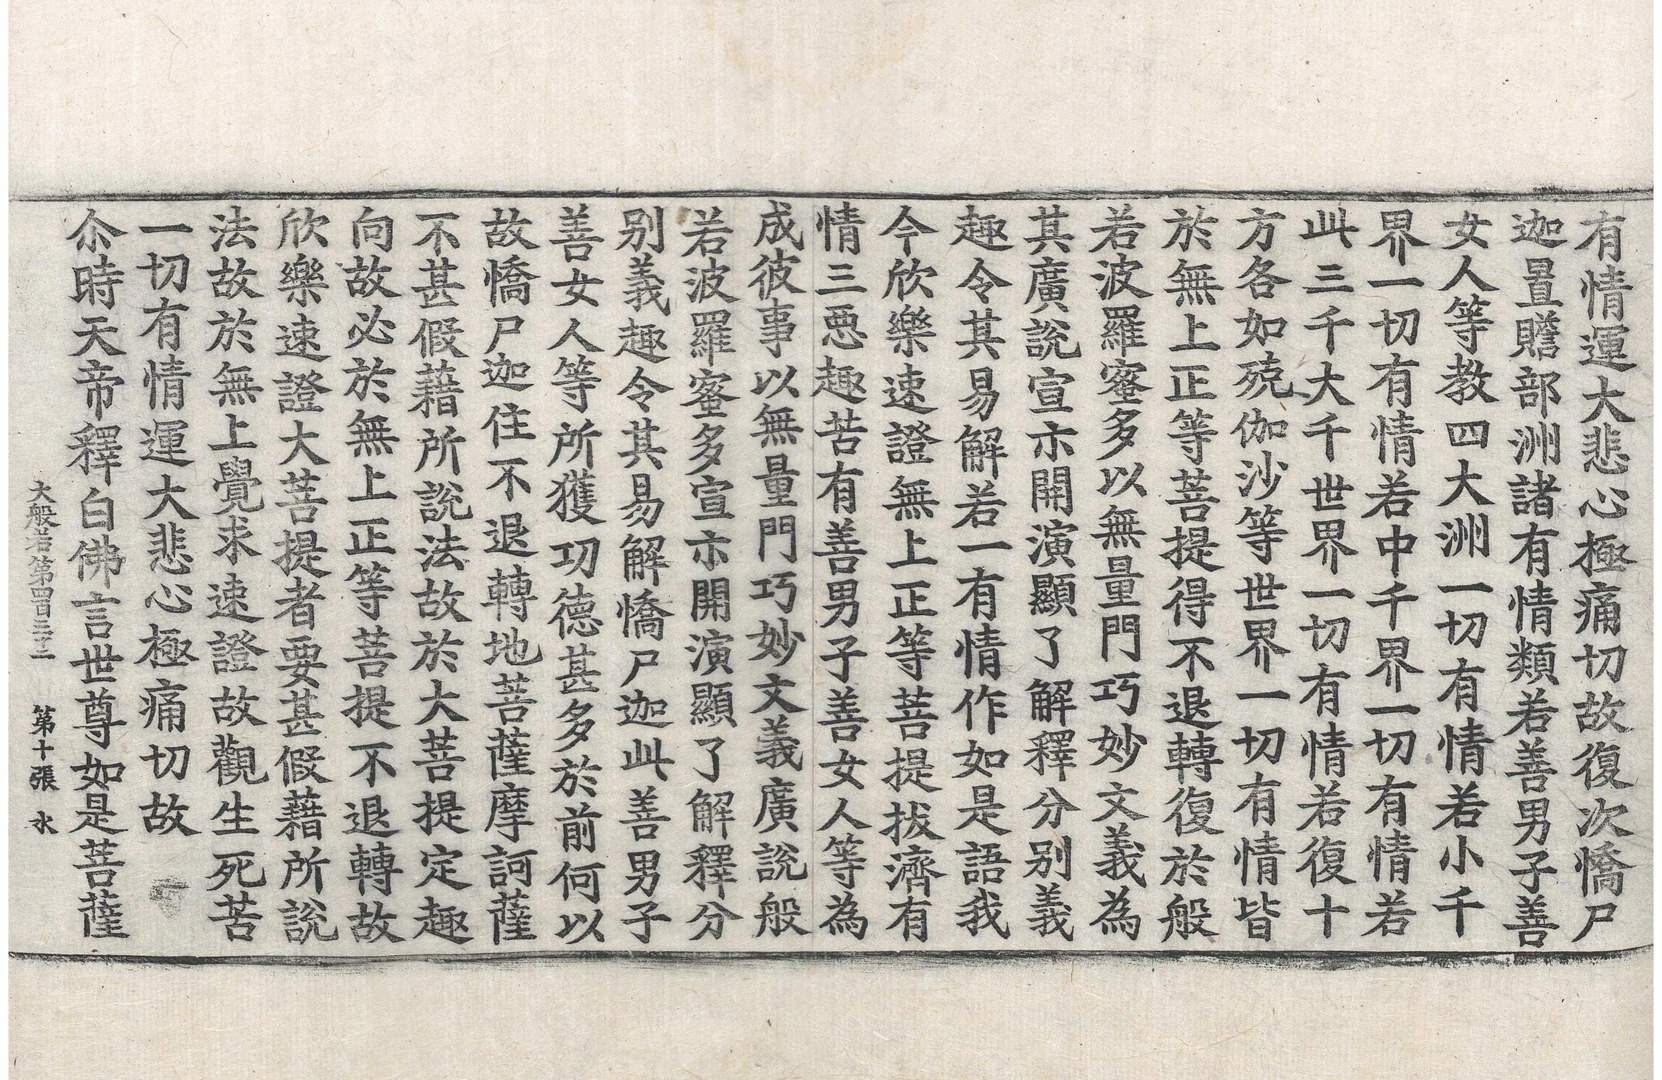 有情運大悲心極痛切故復次憍尸
迦置贍部洲諸有情類若善男子善
女人等教四大洲一切有情若小千
界一切有情若中千界一切有情若
此三千大千世界一切有情若復十
方各如殑伽沙等世界一切有情皆
於無上正等菩提得不退轉復於般
若波羅蜜多以無量門巧妙文義為
其廣說宣示開演顯了解釋分别義
趣令其易解若一有情作如是語我
今欣樂速證無上正等菩提拔濟有
情三惡趣苦有善男子善女人等為
成彼事以無量門巧妙文義廣說般
若波羅蜜多宣示開演顯了解釋分
别義趣令其易解憍尸迦此善男子
善女人等所獲功德甚多於前何以
故憍尸迦住不退轉地菩薩摩訶薩
不甚假藉所說法故於大菩提定趣
向故必於無上正等菩提不退轉故
欣樂速證大菩提者要甚假藉所說
法故於無上覺求速證故觀生死苦
一切有情運大悲心極痛切故
尒時天帝釋白佛言世尊如是菩薩
大般若第四百三十二 第十張 水